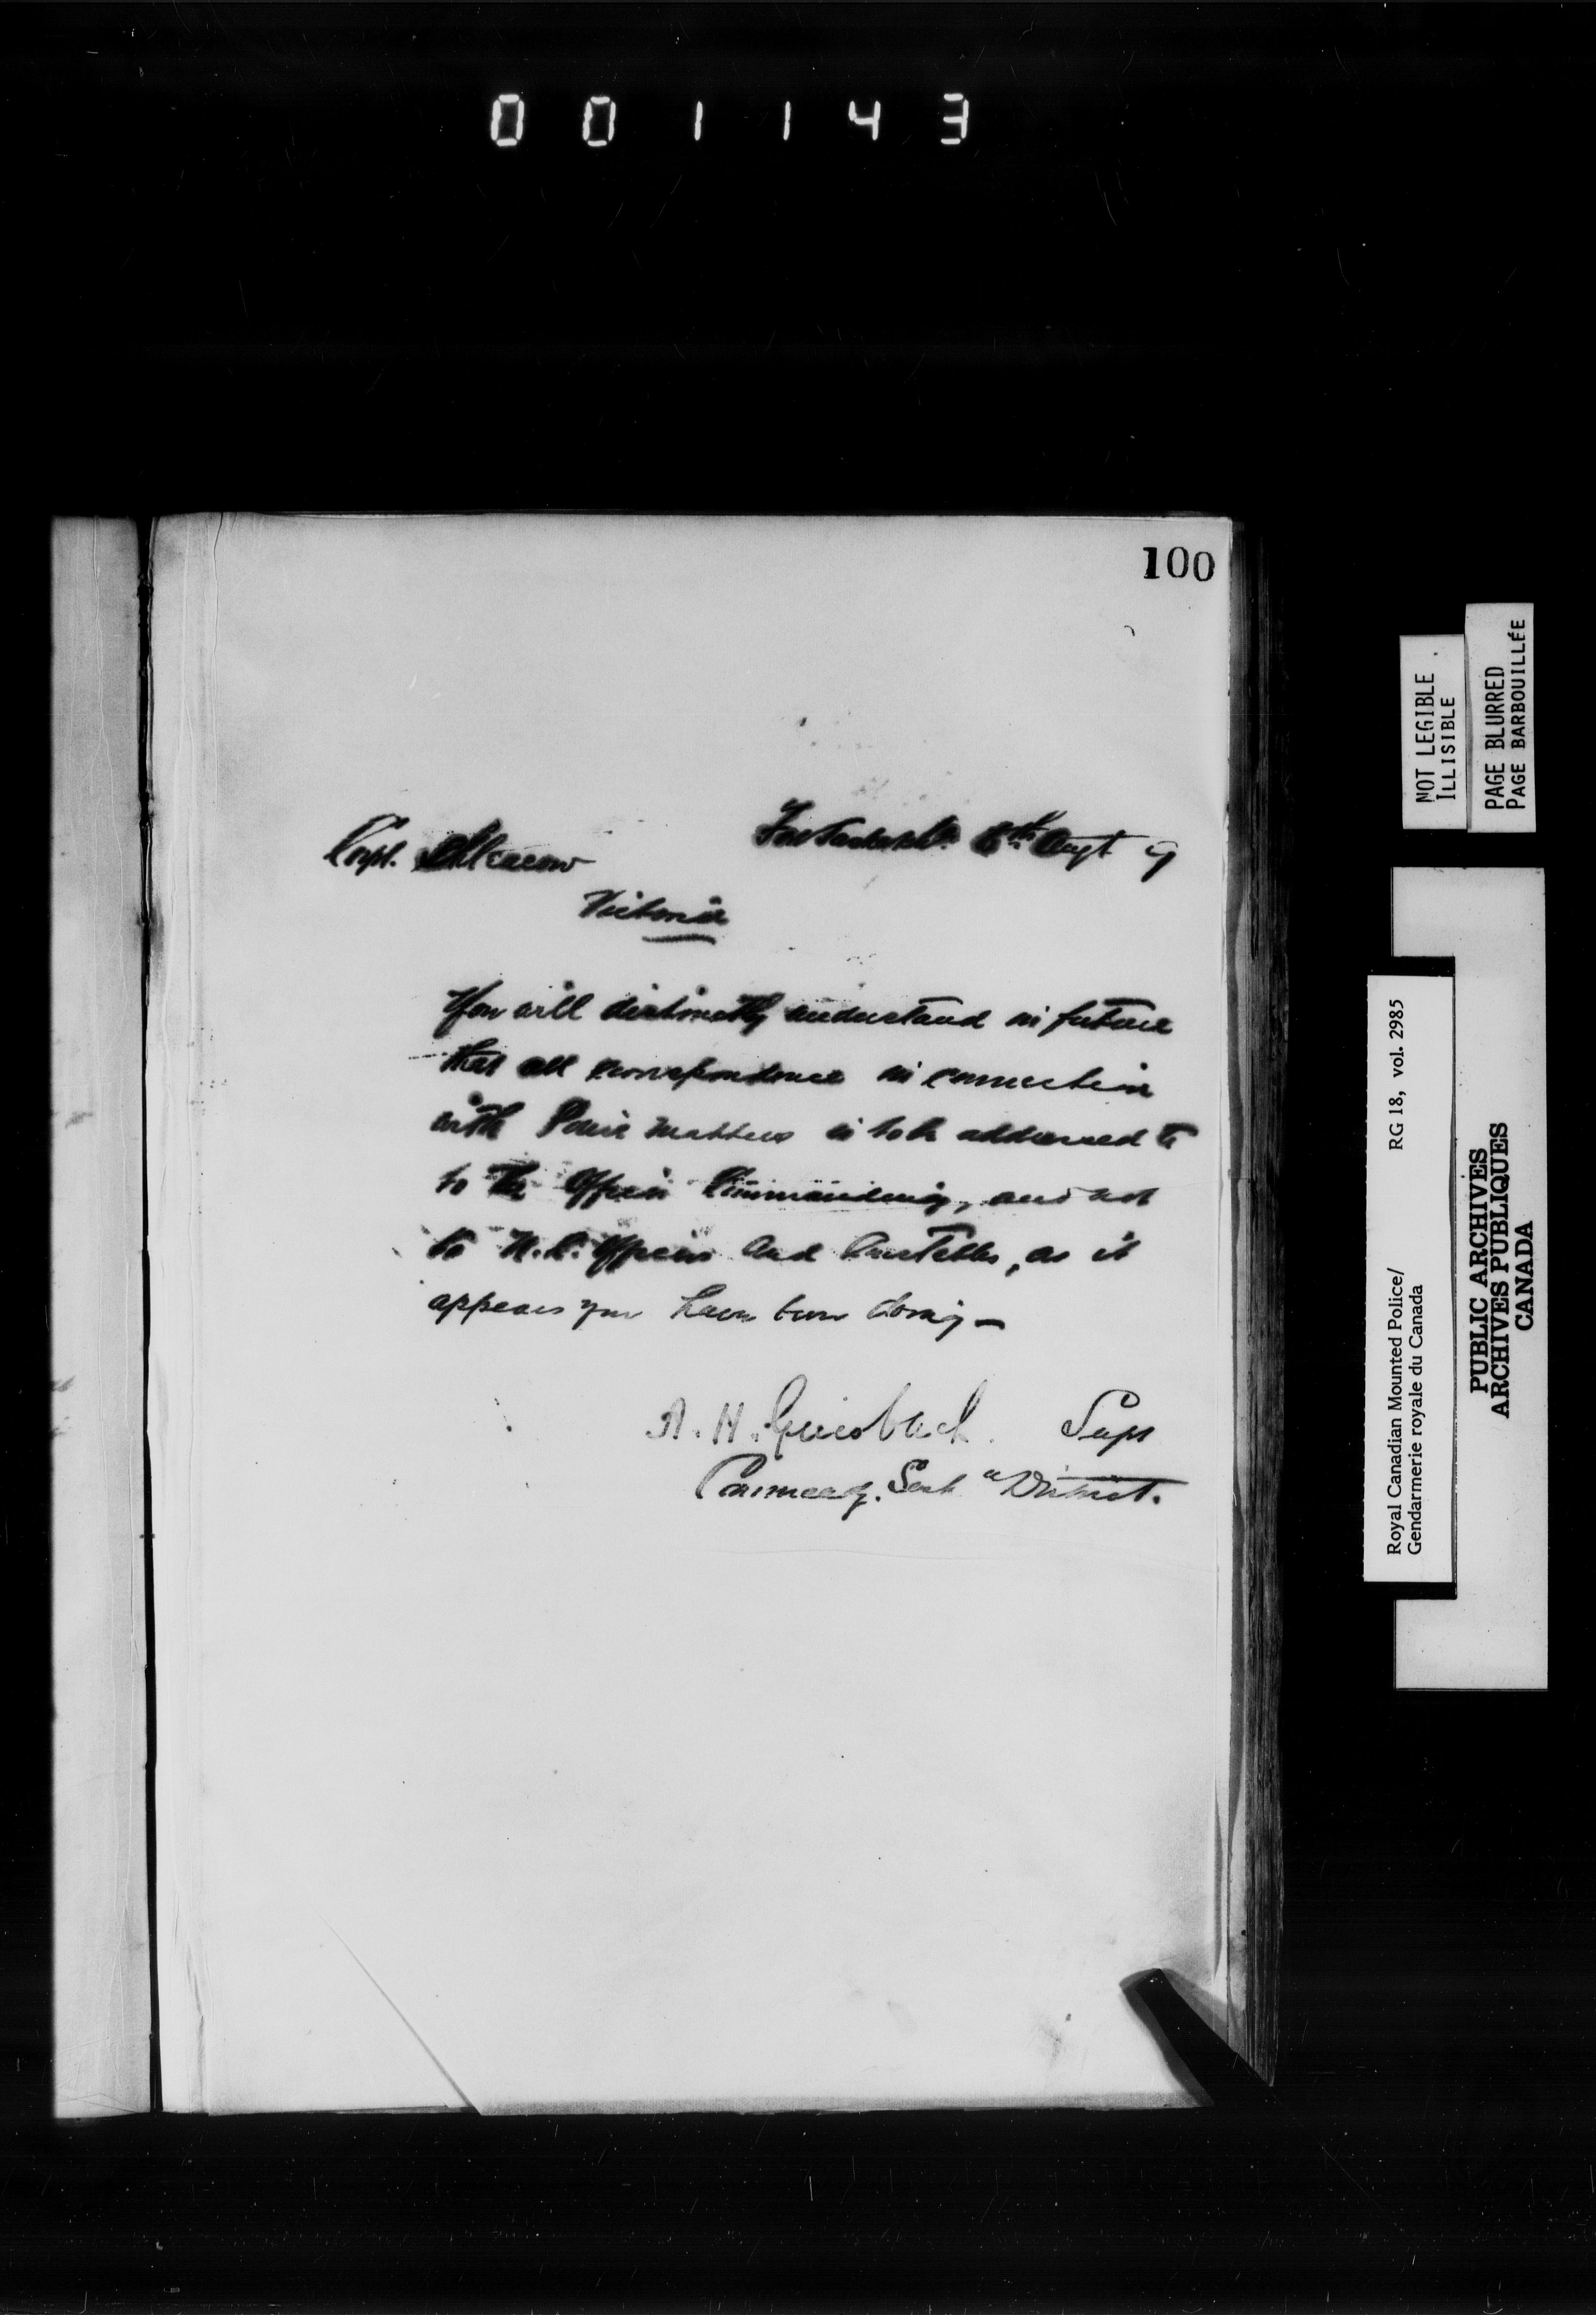 001143
100
Fort Saskn. 8th Augt. 9
Corpl.
Victoria
You will distinctly understand in future
that all correspondence in connection
with Police matters is to be addressed to
to the Officer Commanding, and not
to N.C. Officers and Constables, as it
appears you have been doing—
A. H. Griesbach. Supt
Commdg. Sask n District.
NOT LEGIBLE
ILLISIBLE
PAGE BLURRED
PAGE BARBOUILLÉE
Royal Canadian Mounted Police/ RG 18, vol. 2985
Gendarmerie royale du Canada
PUBLIC ARCHIVES
ARCHIVES PUBLIQUES
CANADA